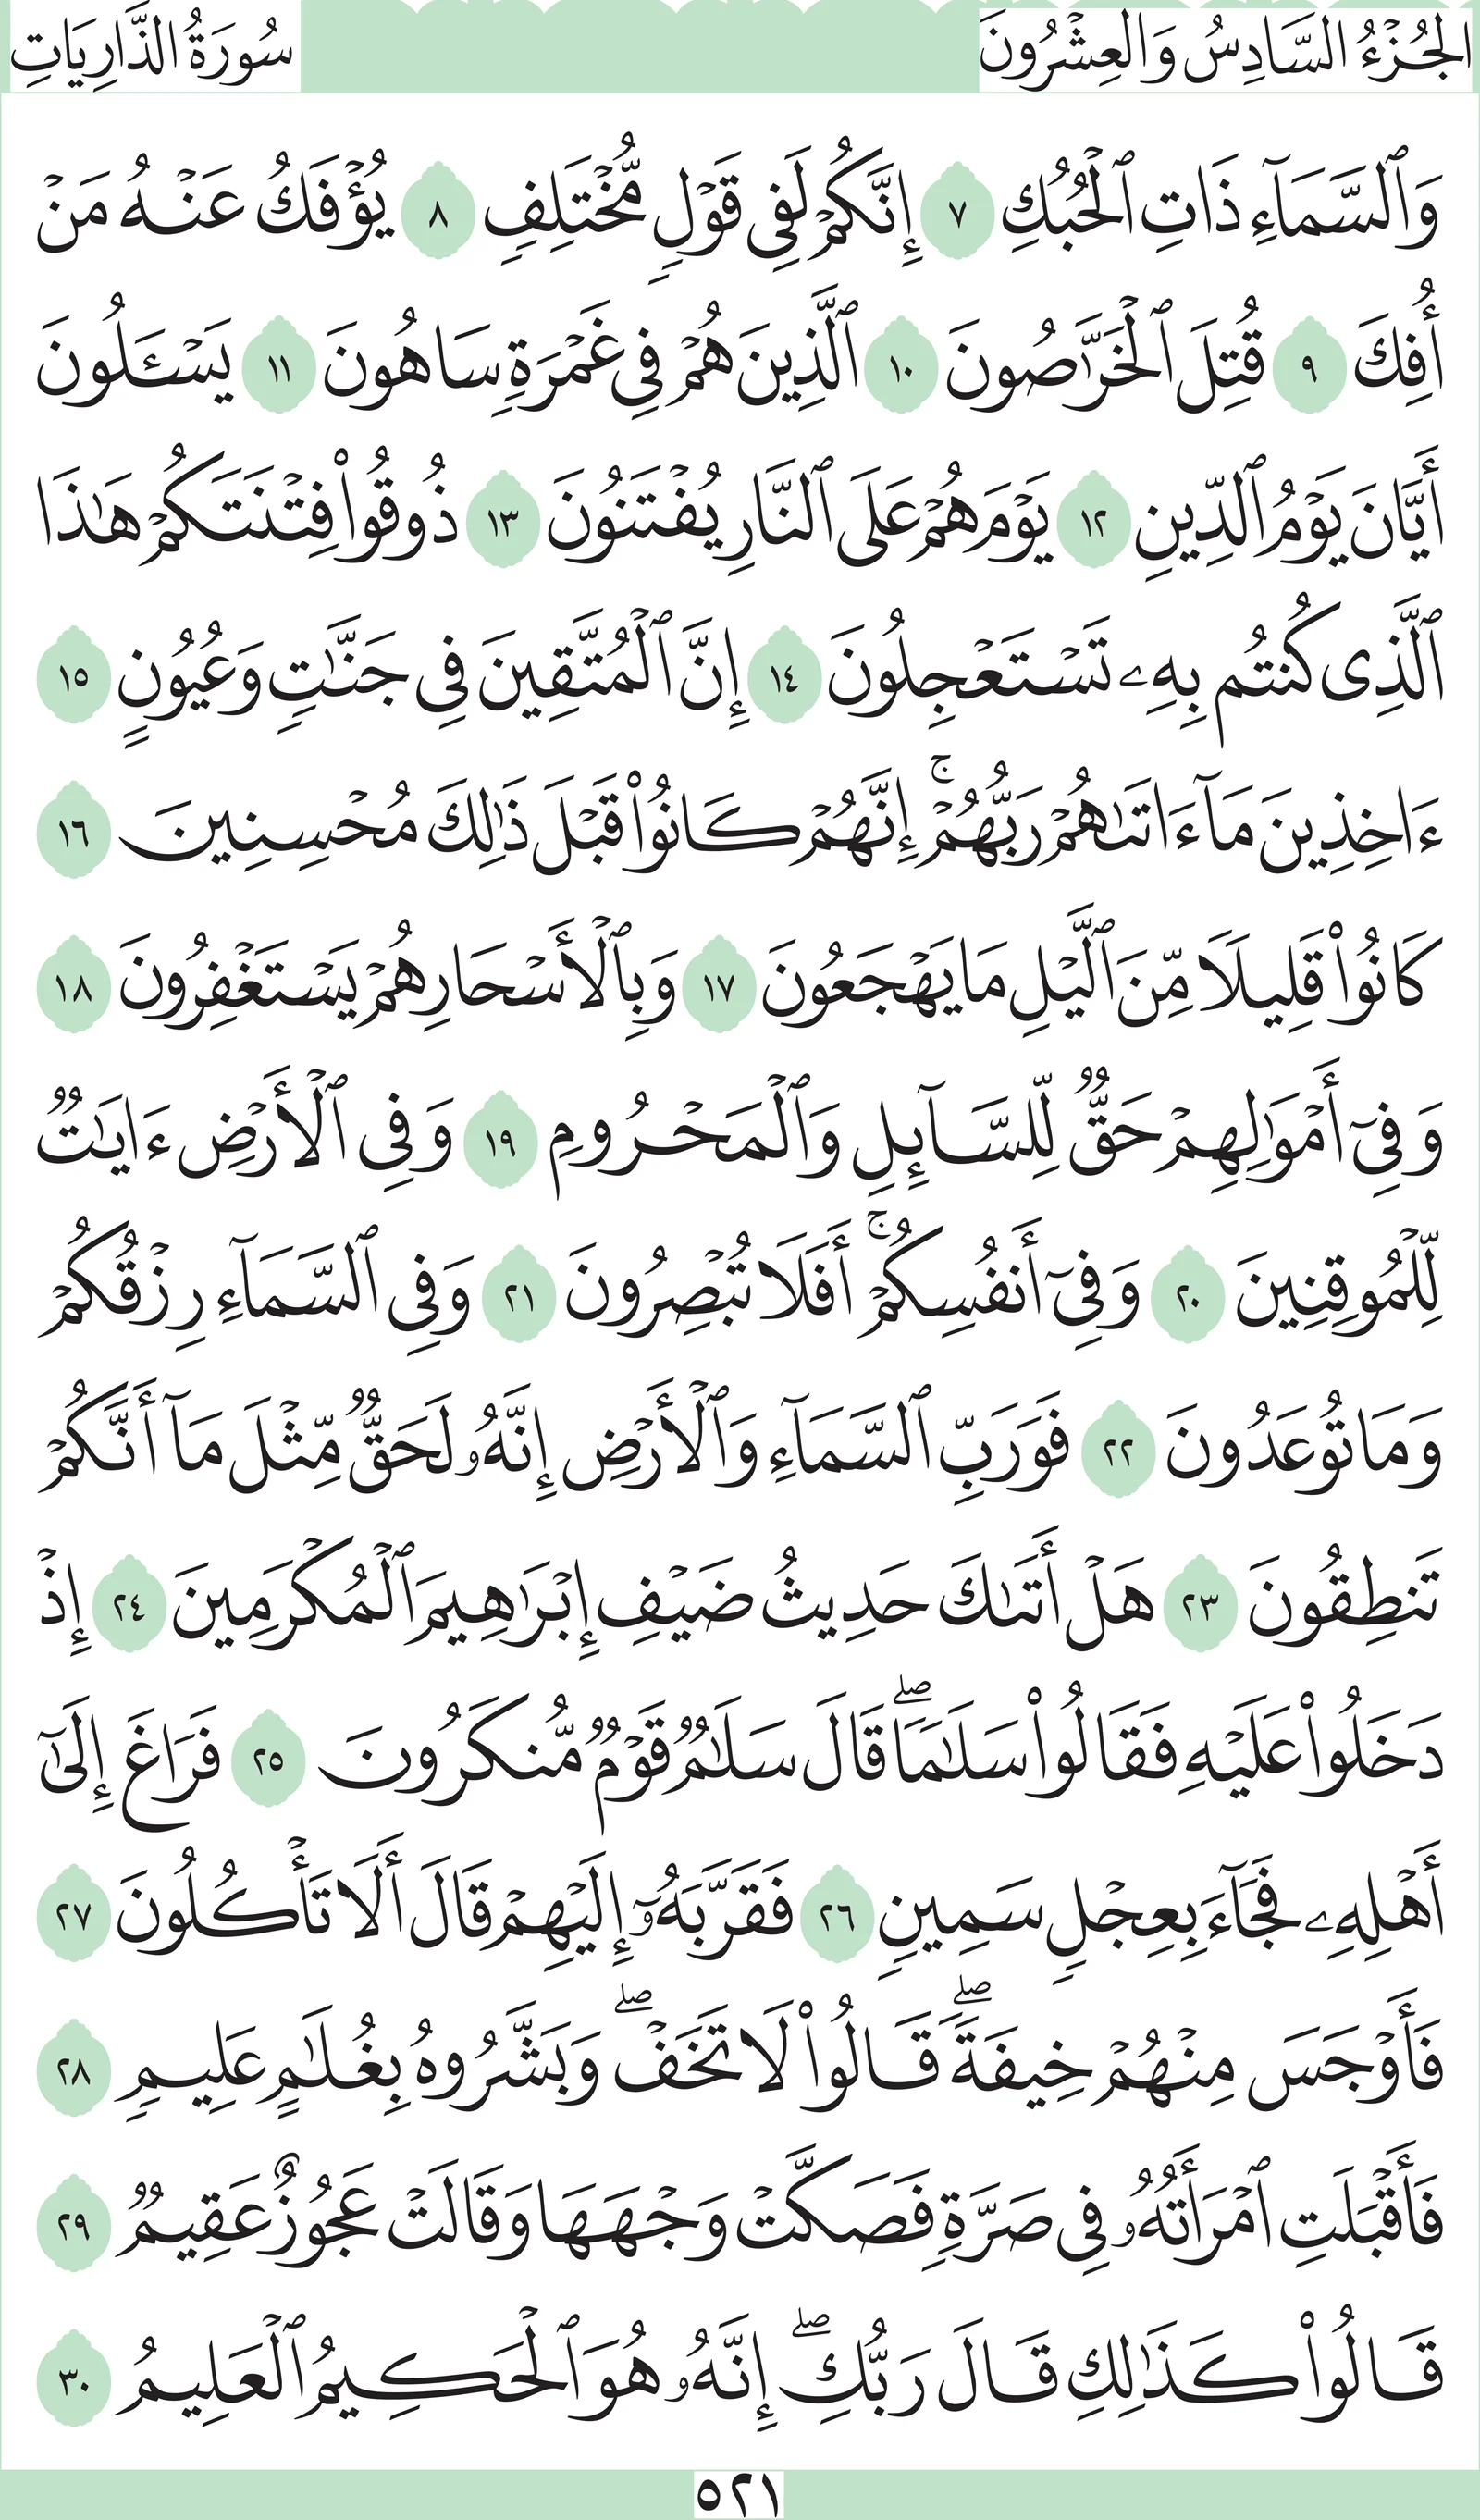 الجُزْءُ السَّادِسُ وَالعِشْرُونَ
سُورَةُ الذَّارِيَاتِ
وَٱلسَّمَآءِ ذَاتِ ٱلۡحُبُكِ ٧ إِنَّكُمۡ لَفِي قَوۡلٖ مُّخۡتَلِفٖ ٨ يُؤۡفَكُ عَنۡهُ مَنۡ
أُفِكَ ٩ قُتِلَ ٱلۡخَرَّٰصُونَ ١٠ ٱلَّذِينَ هُمۡ فِي غَمۡرَةٖ سَاهُونَ ١١ يَسۡـَٔلُونَ
أَيَّانَ يَوۡمُ ٱلدِّينِ ١٢ يَوۡمَ هُمۡ عَلَى ٱلنَّارِ يُفۡتَنُونَ ١٣ ذُوقُواْ فِتۡنَتَكُمۡ هَٰذَا
ٱلَّذِي كُنتُم بِهِۦ تَسۡتَعۡجِلُونَ ١٤ إِنَّ ٱلۡمُتَّقِينَ فِي جَنَّٰتٖ وَعُيُونٍ ١٥
ءَاخِذِينَ مَآ ءَاتَىٰهُمۡ رَبُّهُمۡۚ إِنَّهُمۡ كَانُواْ قَبۡلَ ذَٰلِكَ مُحۡسِنِينَ ١٦
كَانُواْ قَلِيلٗا مِّنَ ٱلَّيۡلِ مَا يَهۡجَعُونَ ١٧ وَبِٱلۡأَسۡحَارِ هُمۡ يَسۡتَغۡفِرُونَ ١٨
وَفِيٓ أَمۡوَٰلِهِمۡ حَقّٞ لِّلسَّآئِلِ وَٱلۡمَحۡرُومِ ١٩ وَفِي ٱلۡأَرۡضِ ءَايَٰتٞ
لِّلۡمُوقِنِينَ ٢٠ وَفِيٓ أَنفُسِكُمۡۚ أَفَلَا تُبۡصِرُونَ ٢١ وَفِي ٱلسَّمَآءِ رِزۡقُكُمۡ
وَمَا تُوعَدُونَ ٢٢ فَوَرَبِّ ٱلسَّمَآءِ وَٱلۡأَرۡضِ إِنَّهُۥ لَحَقّٞ مِّثۡلَ مَآ أَنَّكُمۡ
تَنطِقُونَ ٢٣ هَلۡ أَتَىٰكَ حَدِيثُ ضَيۡفِ إِبۡرَٰهِيمَ ٱلۡمُكۡرَمِينَ ٢٤ إِذۡ
دَخَلُواْ عَلَيۡهِ فَقَالُواْ سَلَٰمٗاۖ قَالَ سَلَٰمٞ قَوۡمٞ مُّنكَرُونَ ٢٥ فَرَاغَ إِلَىٰٓ
أَهۡلِهِۦ فَجَآءَ بِعِجۡلٖ سَمِينٖ ٢٦ فَقَرَّبَهُۥٓ إِلَيۡهِمۡ قَالَ أَلَا تَأۡكُلُونَ ٢٧
فَأَوۡجَسَ مِنۡهُمۡ خِيفَةٗۖ قَالُواْ لَا تَخَفۡۖ وَبَشَّرُوهُ بِغُلَٰمٍ عَلِيمٖ ٢٨
فَأَقۡبَلَتِ ٱمۡرَأَتُهُۥ فِي صَرَّةٖ فَصَكَّتۡ وَجۡهَهَا وَقَالَتۡ عَجُوزٌ عَقِيمٞ ٢٩
قَالُواْ كَذَٰلِكِ قَالَ رَبُّكِۖ إِنَّهُۥ هُوَ ٱلۡحَكِيمُ ٱلۡعَلِيمُ ٣٠
٥٢١